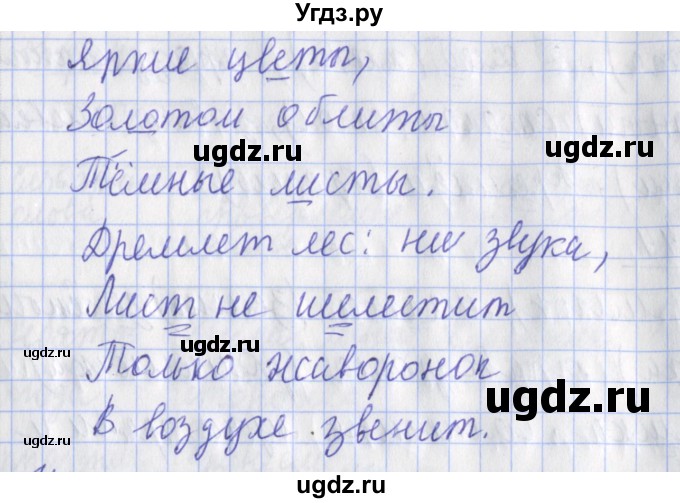 Угдз.ру
Яркие цветы,
Золотом облиты
ugdz.ru
ugdz.ru
Тёмные листы.
Дремлет лес: ни звука,
Лист не шелестит
ugdz.ru
ugdz.ru
Только жаворонок
ugdz.ru
В воздухе звенит.
ugdz.ru